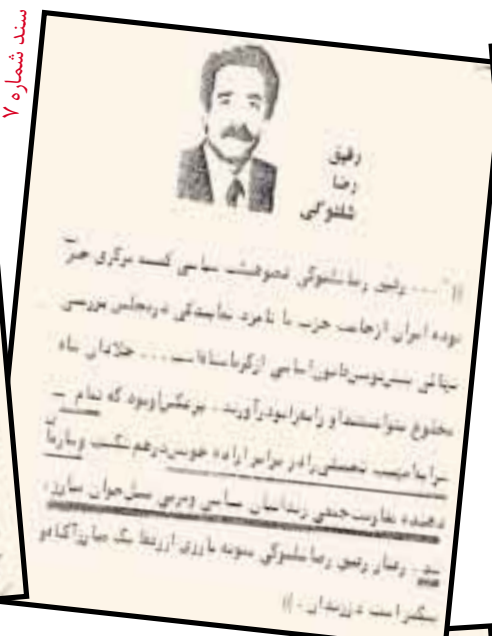 سند شماره ۷
رفیق
رضا
شلتوکی
((" ... رفیق رضا شلتوکی عضو هیئت سیاسی کمیته مرکزی حزب
توده ایران از جانب حزب ما نامزد نمایندگی در مجلس بررسی
نهائی پیش نویس قانون اساسی از کرمانشاه است ... جلادان شاه
مخلوع نتوانستند او را بزانو درآورند . برعکس او بود که تمام
شرایط مهیب تحمیلی را در برابر اراده خویش درهم شکست و سازمان
دهنده مقاومت جمعی زندانیان سیاسی و مربی نسل جوان مبارز ،
شد . رفتار رفیق رضا شلتوکی نمونه بارزی از رفتار یک مبارز آگاه و
سنگر است در زندان . ))